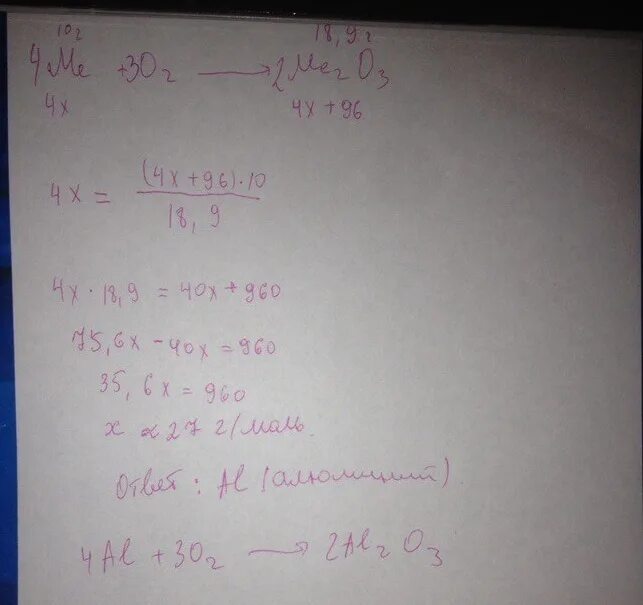 10г 18,9г
4Me + 3O2 → 2Me2O3
4x 4x + 96
4x = (4x + 96)·10 / 18,9
4x · 18,9 = 40x + 960
75,6x - 40x = 960
35,6x = 960
x ≈ 27 г/моль.
Ответ: Al (алюминий)
4Al + 3O2 → 2Al2O3